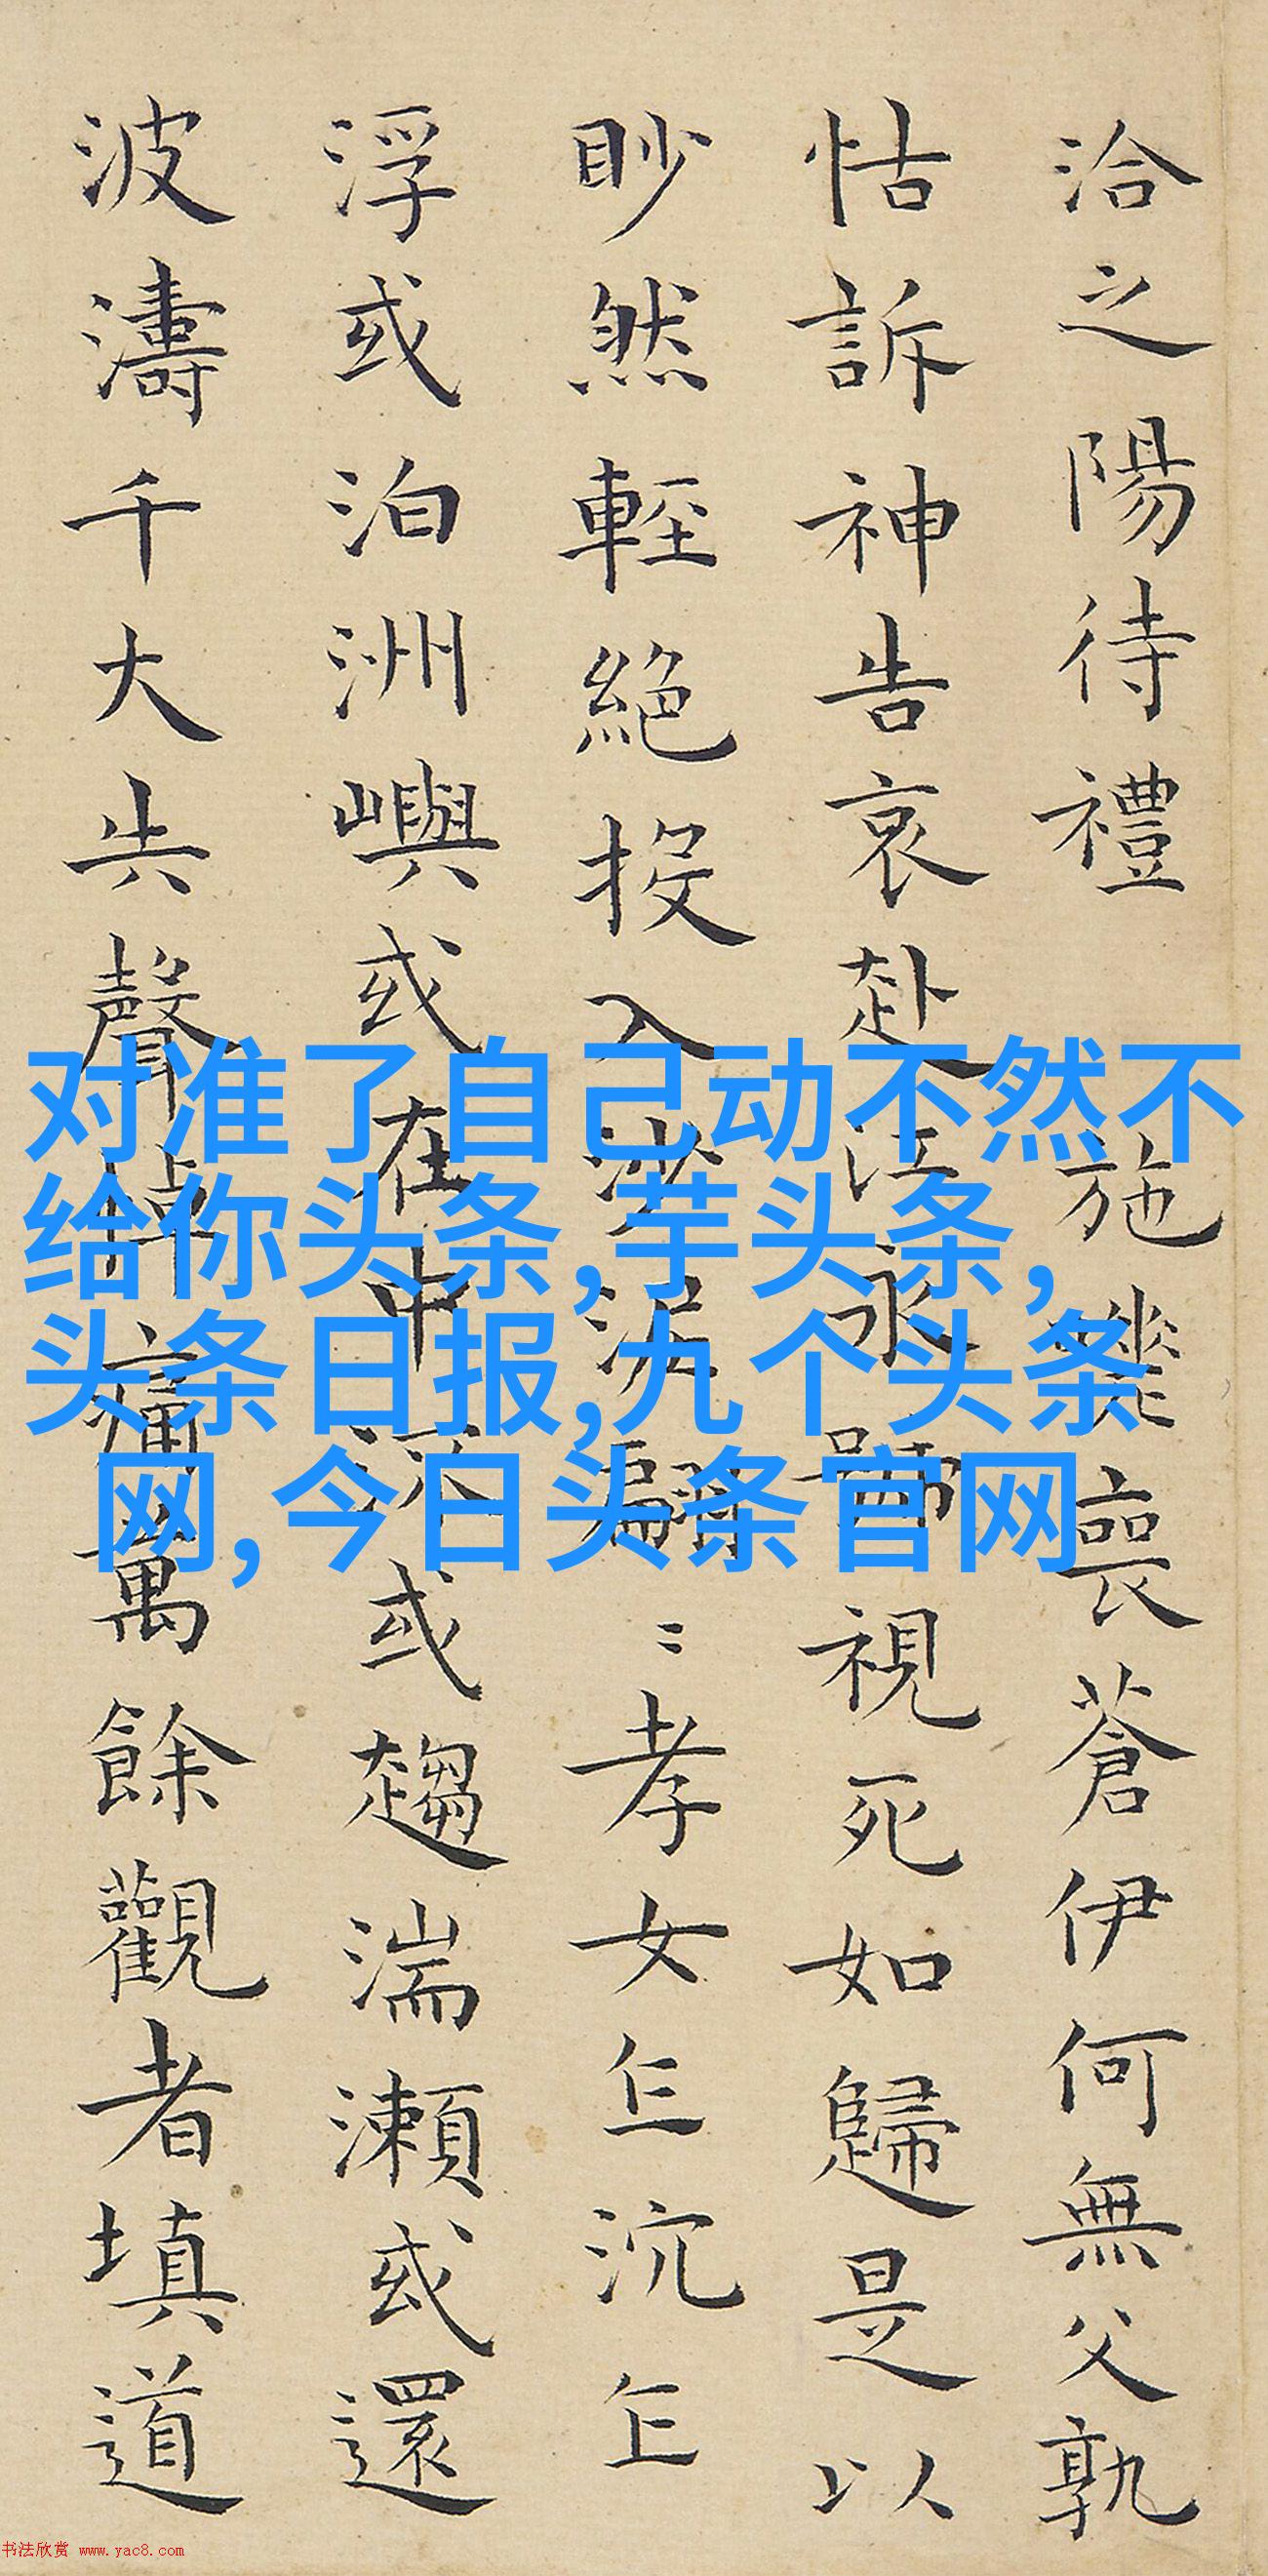 洽之陽待禮施嗟喪蒼伊何無父孰
怙訴神告哀赴江永號視死如歸是以
眇然輕絕投入沙泥翩〻孝女乍沉乍
浮或泊洲嶼或在中流或趨湍瀨或還
波濤千大失聲悼痛萬餘觀者填道
对准了自己动不然不
给你头条,芋头条,
头条日报,九个头条
网,今日头条官网
书法欣赏 www.yac8.com